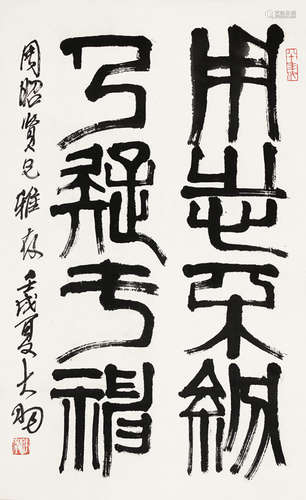 用志不紛
乃疑於神
周昭賢兄雅存 壬戌夏大羽